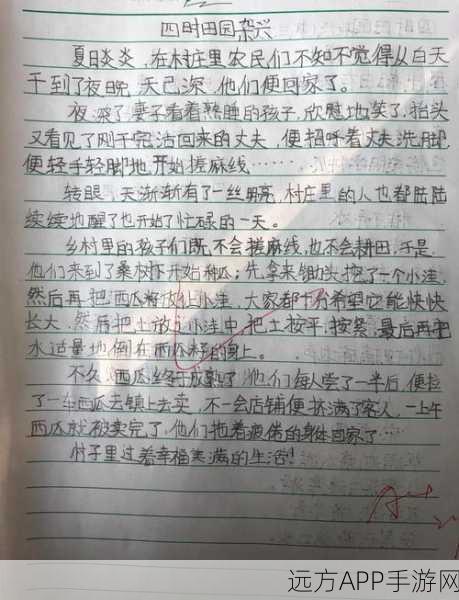 四时田园杂兴
夏日炎炎,在村庄里农民们不知不觉得从白天
干到了夜晚,天已深,他们便回家了。
夜深了妻子看着熟睡的孩子,欣慰地笑了,抬头
又看见了刚干完活回来的丈夫,便招呼着丈夫洗脚,
便轻手轻脚地开始搓麻线……
转眼,天渐渐有了一丝明亮,村庄里的人也都陆陆
续续地醒了也开始了忙碌的一天。
乡村里的孩子们既不会搓麻线,也不会耕田,于是,
他们来到了桑树下开始种瓜;先拿来锄头挖了一个小洼,
然后再把西瓜籽放上小洼,大家都十分希望它能快快
长大,然后把土放之小洼中,把土按平,按紧,最后再把
水适量地倒在西瓜籽的身上。
不久,西瓜终于成熟了,他们每人尝了一半后,便拉
了一车西瓜去镇上去卖,不一会店铺便挤满了客人,一上午
西瓜就被卖完了,他们拖着疲倦的身体回家了…
村子里过着幸福美满的生活!
远方APP手游网